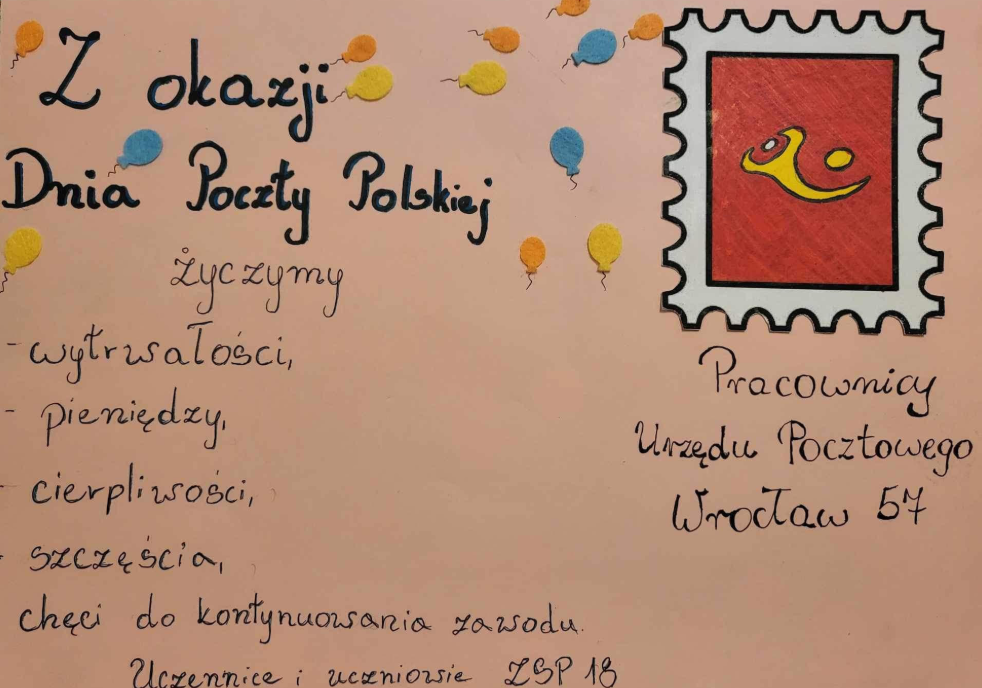 Z okazji
Dnia Poczty Polskiej
życzymy
- wytrwałości,
- pieniędzy,
- cierpliwości,
- szczęścia,
chęci do kontynuowania zawodu.
Uczennice i uczniowie ZSP 18
Pracownicy
Urzędu Pocztowego
Wrocław 57